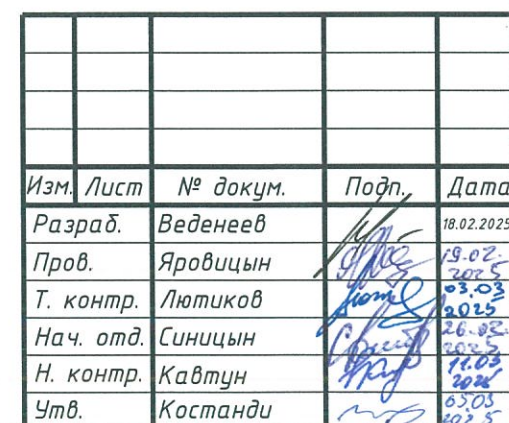 Изм. Лист № докум. Подп. Дата
Разраб. Веденеев 18.02.2025
Пров. Яровицын 19.02.2025
Т. контр. Лютиков 03.03 2025
Нач. отд. Синицын 26.02. 2025
Н. контр. Кавтун 11.03
Утв. Костанди